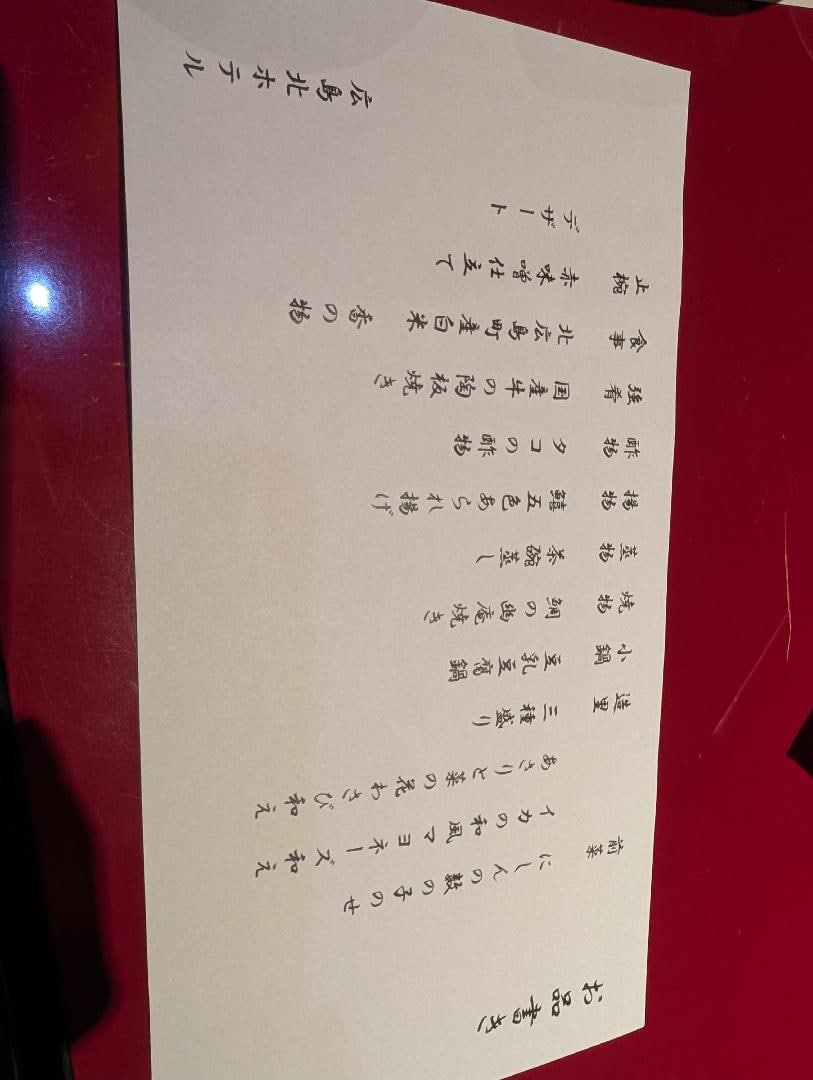 お品書き
前菜
にしんの数の子のせ
イカの和風マヨネーズ和え
あさりと菜の花わさび和え
造里 三種盛り
小鍋 豆乳豆腐鍋
焼物 鯛の幽庵焼き
蒸物 茶碗蒸し
揚物 鱚五色あられ揚げ
酢物 タコの酢物
強肴 国産牛の陶板焼き
食事 北広島町産白米 香の物
止椀 赤味噌仕立て
デザート
広島北ホテル